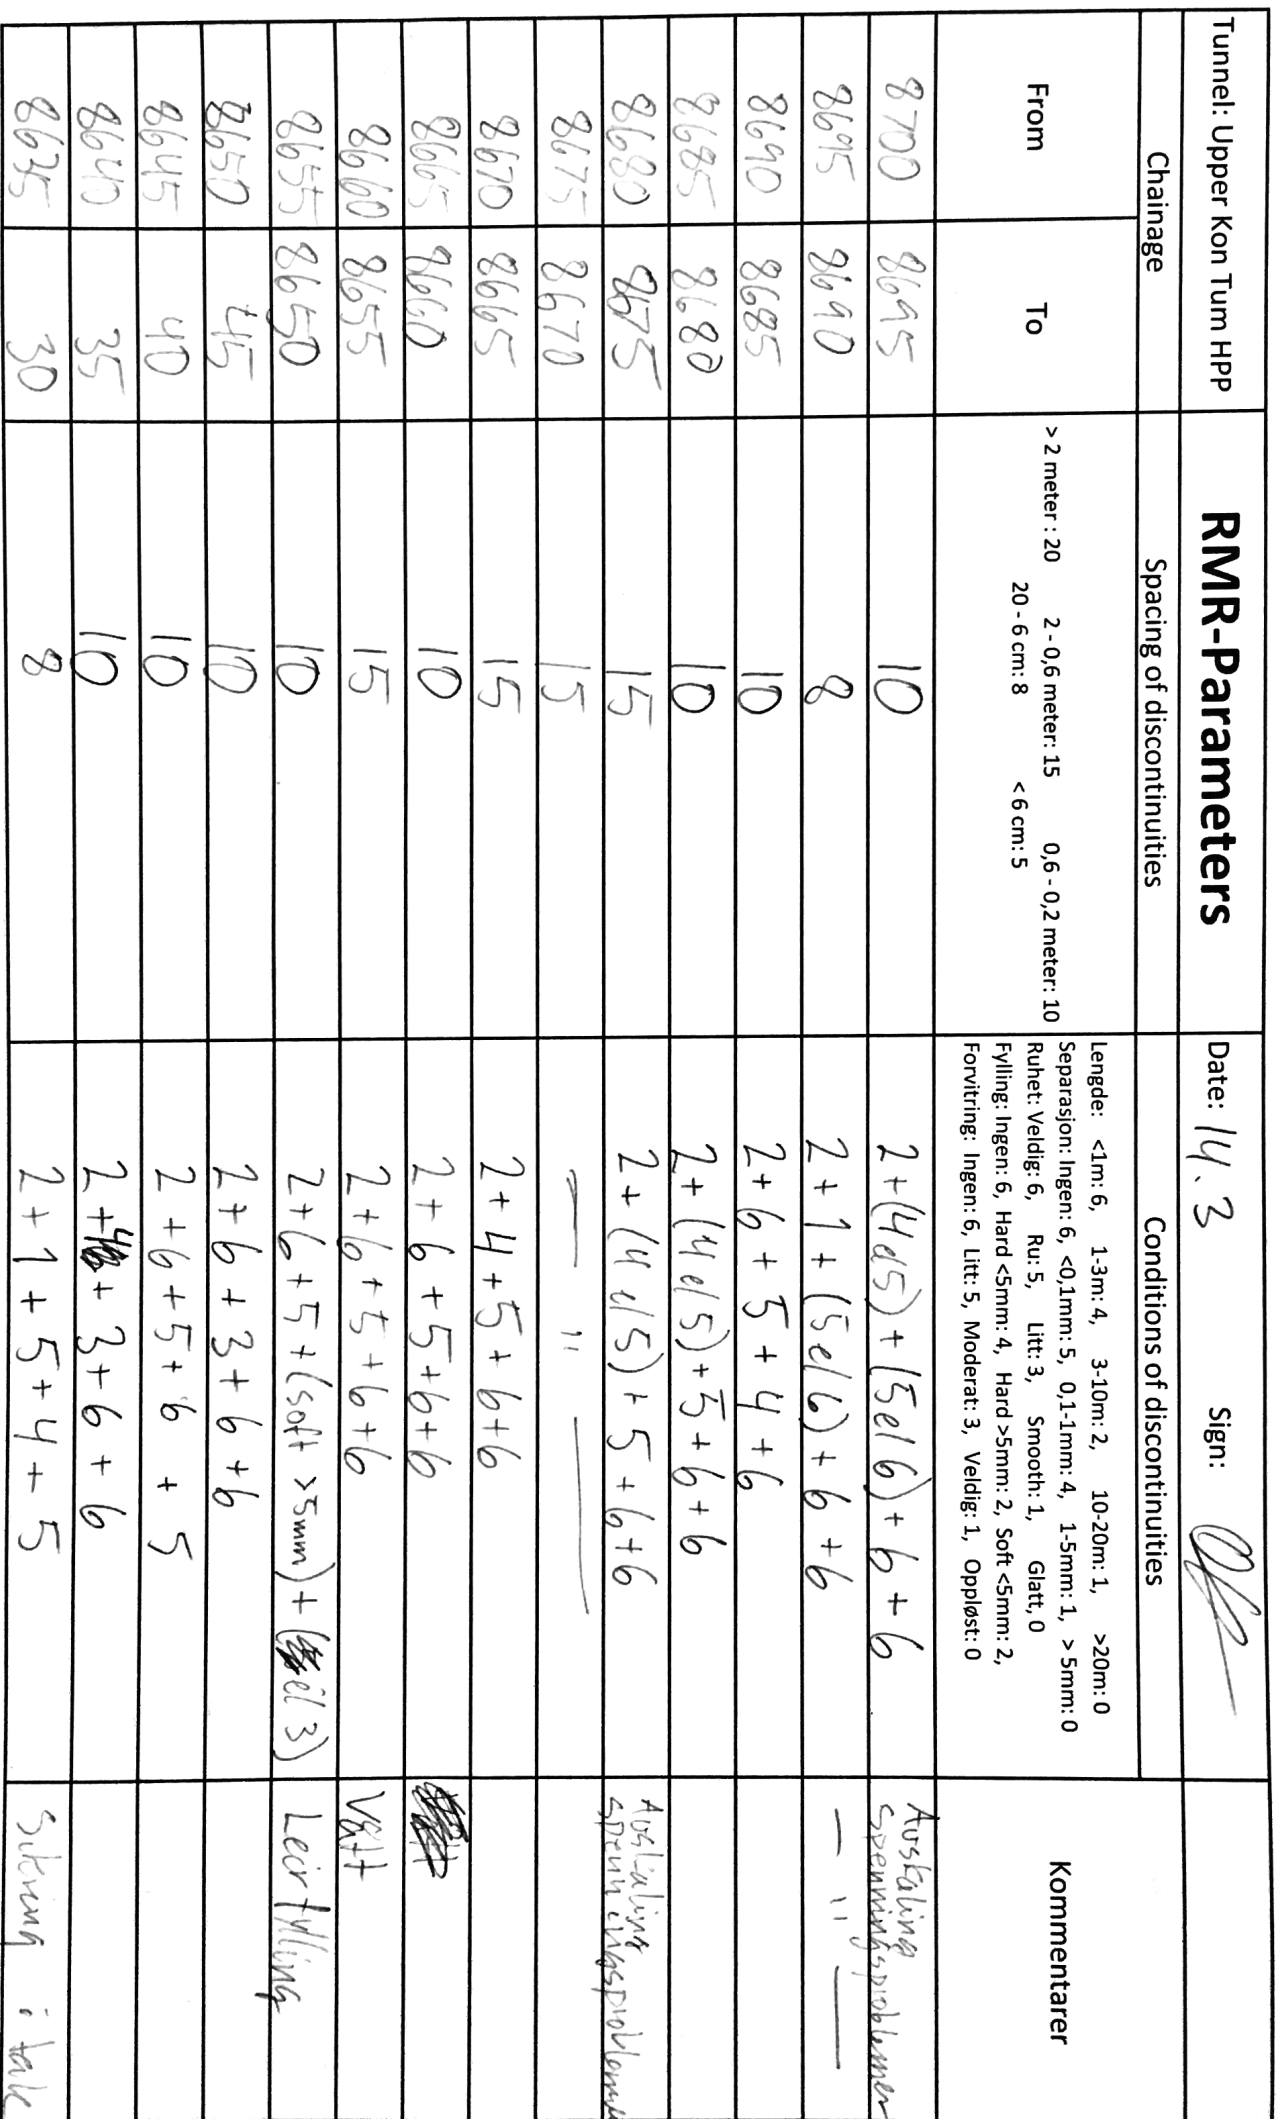 Tunnel: Upper Kon Tum HPP RMR-Parameters Date: 14.3 Sign:
Chainage Spacing of discontinuities Conditions of discontinuities
From To Kommentarer
> 2 meter : 20 2 - 0,6 meter: 15 0,6 - 0,2 meter: 10
20 - 6 cm: 8 < 6 cm: 5
Lengde: <1m: 6, 1-3m: 4, 3-10m: 2, 10-20m: 1, >20m: 0
Separasjon: Ingen: 6, <0,1mm: 5, 0,1-1mm: 4, 1-5mm: 1, > 5mm: 0
Ruhet: Veldig: 6, Ru: 5, Litt: 3, Smooth: 1, Glatt, 0
Fylling: Ingen: 6, Hard <5mm: 4, Hard >5mm: 2, Soft <5mm: 2,
Forvitring: Ingen: 6, Litt: 5, Moderat: 3, Veldig: 1, Oppløst: 0
8700 8695 10 2+(4el5)+(5el6)+6+6 Avskaling
Spenningsproblemer
8695 8690 8 2+1+(5el6)+6+6 — " —
8690 8685 10 2+6+5+4+6
8685 8680 10 2+(4el5)+5+6+6
8680 8675 15 2+(4el5)+5+6+6 Avskaling
spenningsprobleme
8675 8670 15 — " —
8670 8665 15 2+4+5+6+6
8665 8660 10 2+6+5+6+6
8660 8655 15 2+6+5+6+6 Vått
8655 8650 10 2+6+5+(soft >5mm)+(el 3) Leirfylling
8650 45 10 2+6+3+6+6
8645 40 10 2+6+5+6+5
8640 35 10 2+4+3+6+6
8635 30 8 2+1+5+4+5 Sikring i tak